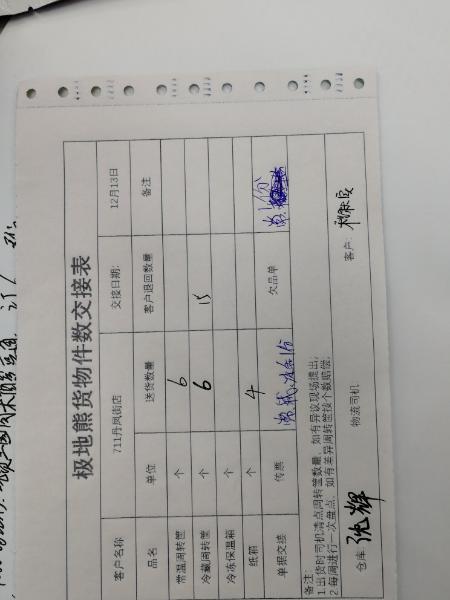 极地熊货物件数交接表
客户名称 711丹凤街店 交接日期: 12月13日
品名 单位 送货数量 客户退回数量 备注
常温周转筐 个 6
冷藏周转筐 个 6 15
冷冻保温箱 个
纸箱 个 4
单据交接 传票 欠品单
备注:
1.出货时司机清点周转筐数量,如有异议现场提出;
2.每周进行一次盘点,如有差异周转筐按个数赔偿.
仓库 物流司机 客户: